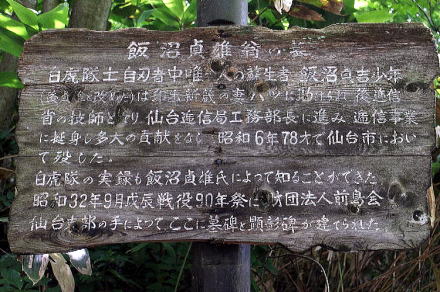 飯沼貞雄翁の墓
白虎隊士自刃者中唯一人の蘇生者 飯沼貞吉少年
は印出新蔵の妻ハツに助けられ 後逓信
省の技師となり 仙台逓信局工務部長に進み 逓信事業
に挺身し多大の貢献をなし 昭和6年78才で仙台市におい
て歿した.
白虎隊の実録も飯沼貞雄氏によって知ることができた
昭和32年9月戊辰戦役90年祭に 財団法人前島会
仙台支部の手によって ここに墓碑と顕彰碑が建てられた